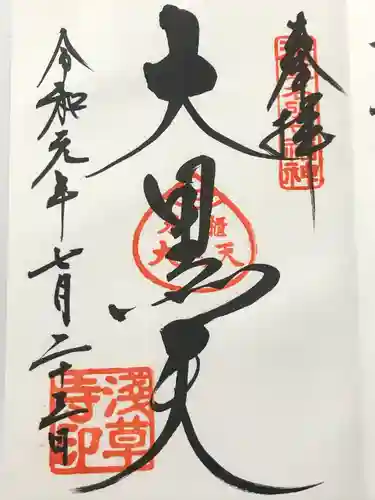 奉拝
大黒天
令和元年七月二十五日
浅草
寺印